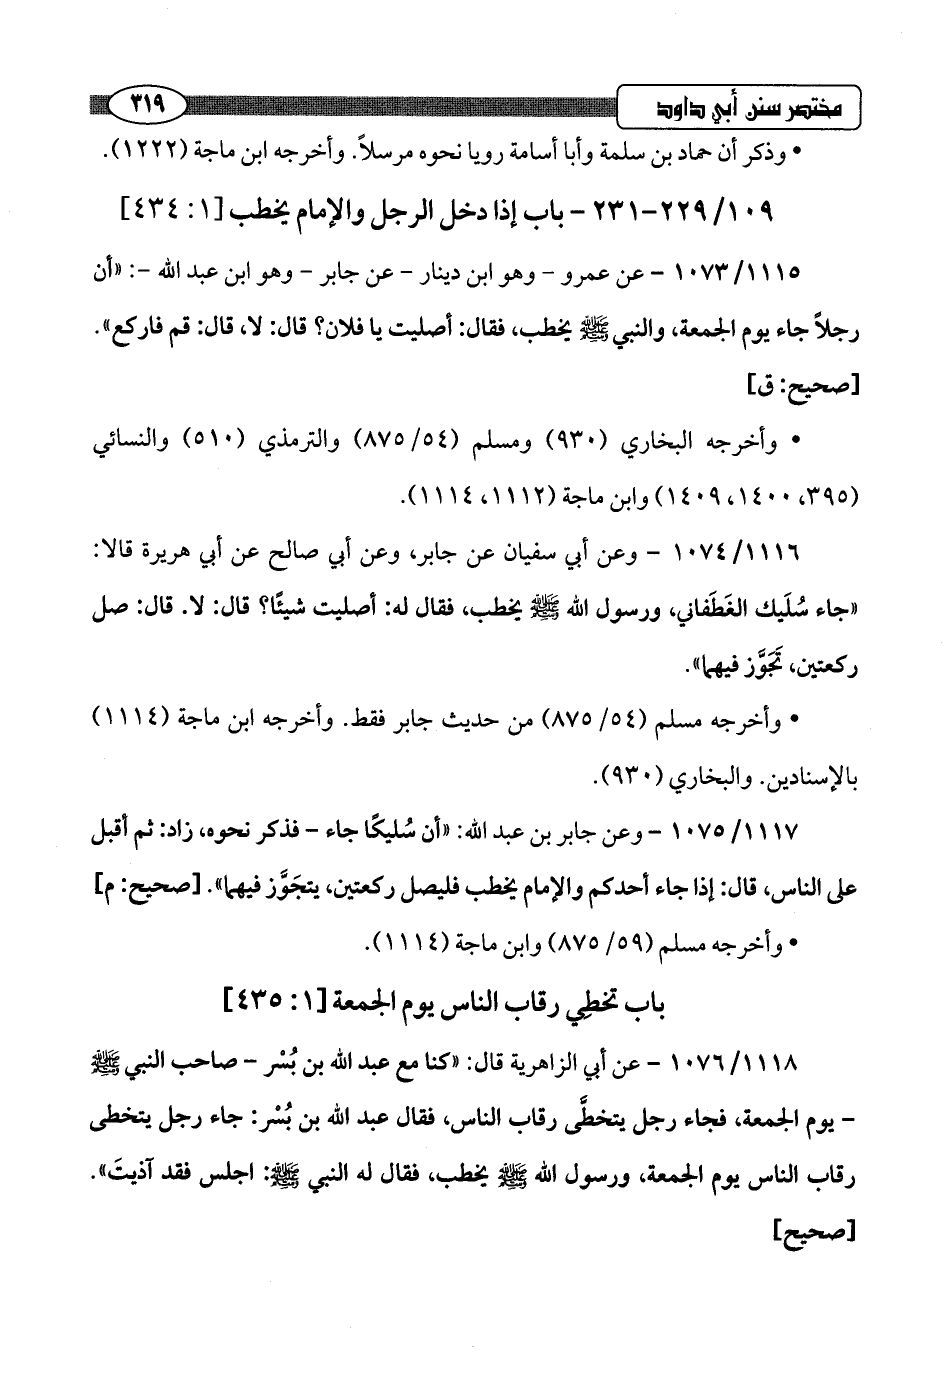 مختصر سنن أبي داود
٣١٩
• وذكر أن حماد بن سلمة وأبا أسامة رويا نحوه مرسلاً. وأخرجه ابن ماجة (١٢٢٢).
١٠٩/ ٢٢٩-٢٣١ - باب إذا دخل الرجل والإمام يخطب [١: ٤٣٤]
١٠٧٣/١١١٥ - عن عمرو - وهو ابن دينار - عن جابر - وهو ابن عبد الله -: «أن
رجلاً جاء يوم الجمعة، والنبي ﷺ يخطب، فقال: أصليت يا فلان؟ قال: لا، قال: قم فاركع».
[صحيح: ق]
• وأخرجه البخاري (٩٣٠) ومسلم (٥٤/ ٨٧٥) والترمذي (٥١٠) والنسائي
(٣٩٥، ١٤٠٠، ١٤٠٩) وابن ماجة (١١١٢، ١١١٤).
١٠٧٤/١١١٦ - وعن أبي سفيان عن جابر، وعن أبي صالح عن أبي هريرة قالا:
«جاء سُلَيك الغَطَفاني، ورسول الله ﷺ يخطب، فقال له: أصليت شيئًا؟ قال: لا. قال: صل
ركعتين، تَجَوَّز فيهما».
• وأخرجه مسلم (٥٤/ ٨٧٥) من حديث جابر فقط. وأخرجه ابن ماجة (١١١٤)
بالإسنادين. والبخاري (٩٣٠).
١٠٧٥/١١١٧ - وعن جابر بن عبد الله: «أن سُليكًا جاء - فذكر نحوه، زاد: ثم أقبل
على الناس، قال: إذا جاء أحدكم والإمام يخطب فليصل ركعتين، يتجَوَّز فيهما». [صحيح: م]
• وأخرجه مسلم (٥٩/ ٨٧٥) وابن ماجة (١١١٤).
باب تخطِي رقاب الناس يوم الجمعة [١: ٤٣٥]
١٠٧٦/١١١٨ - عن أبي الزاهرية قال: «كنا مع عبد الله بن بُسْر - صاحب النبي ﷺ
- يوم الجمعة، فجاء رجل يتخطَّى رقاب الناس، فقال عبد الله بن بُسْر: جاء رجل يتخطى
رقاب الناس يوم الجمعة، ورسول الله ﷺ يخطب، فقال له النبي ﷺ: اجلس فقد آذيتَ».
[صحيح]